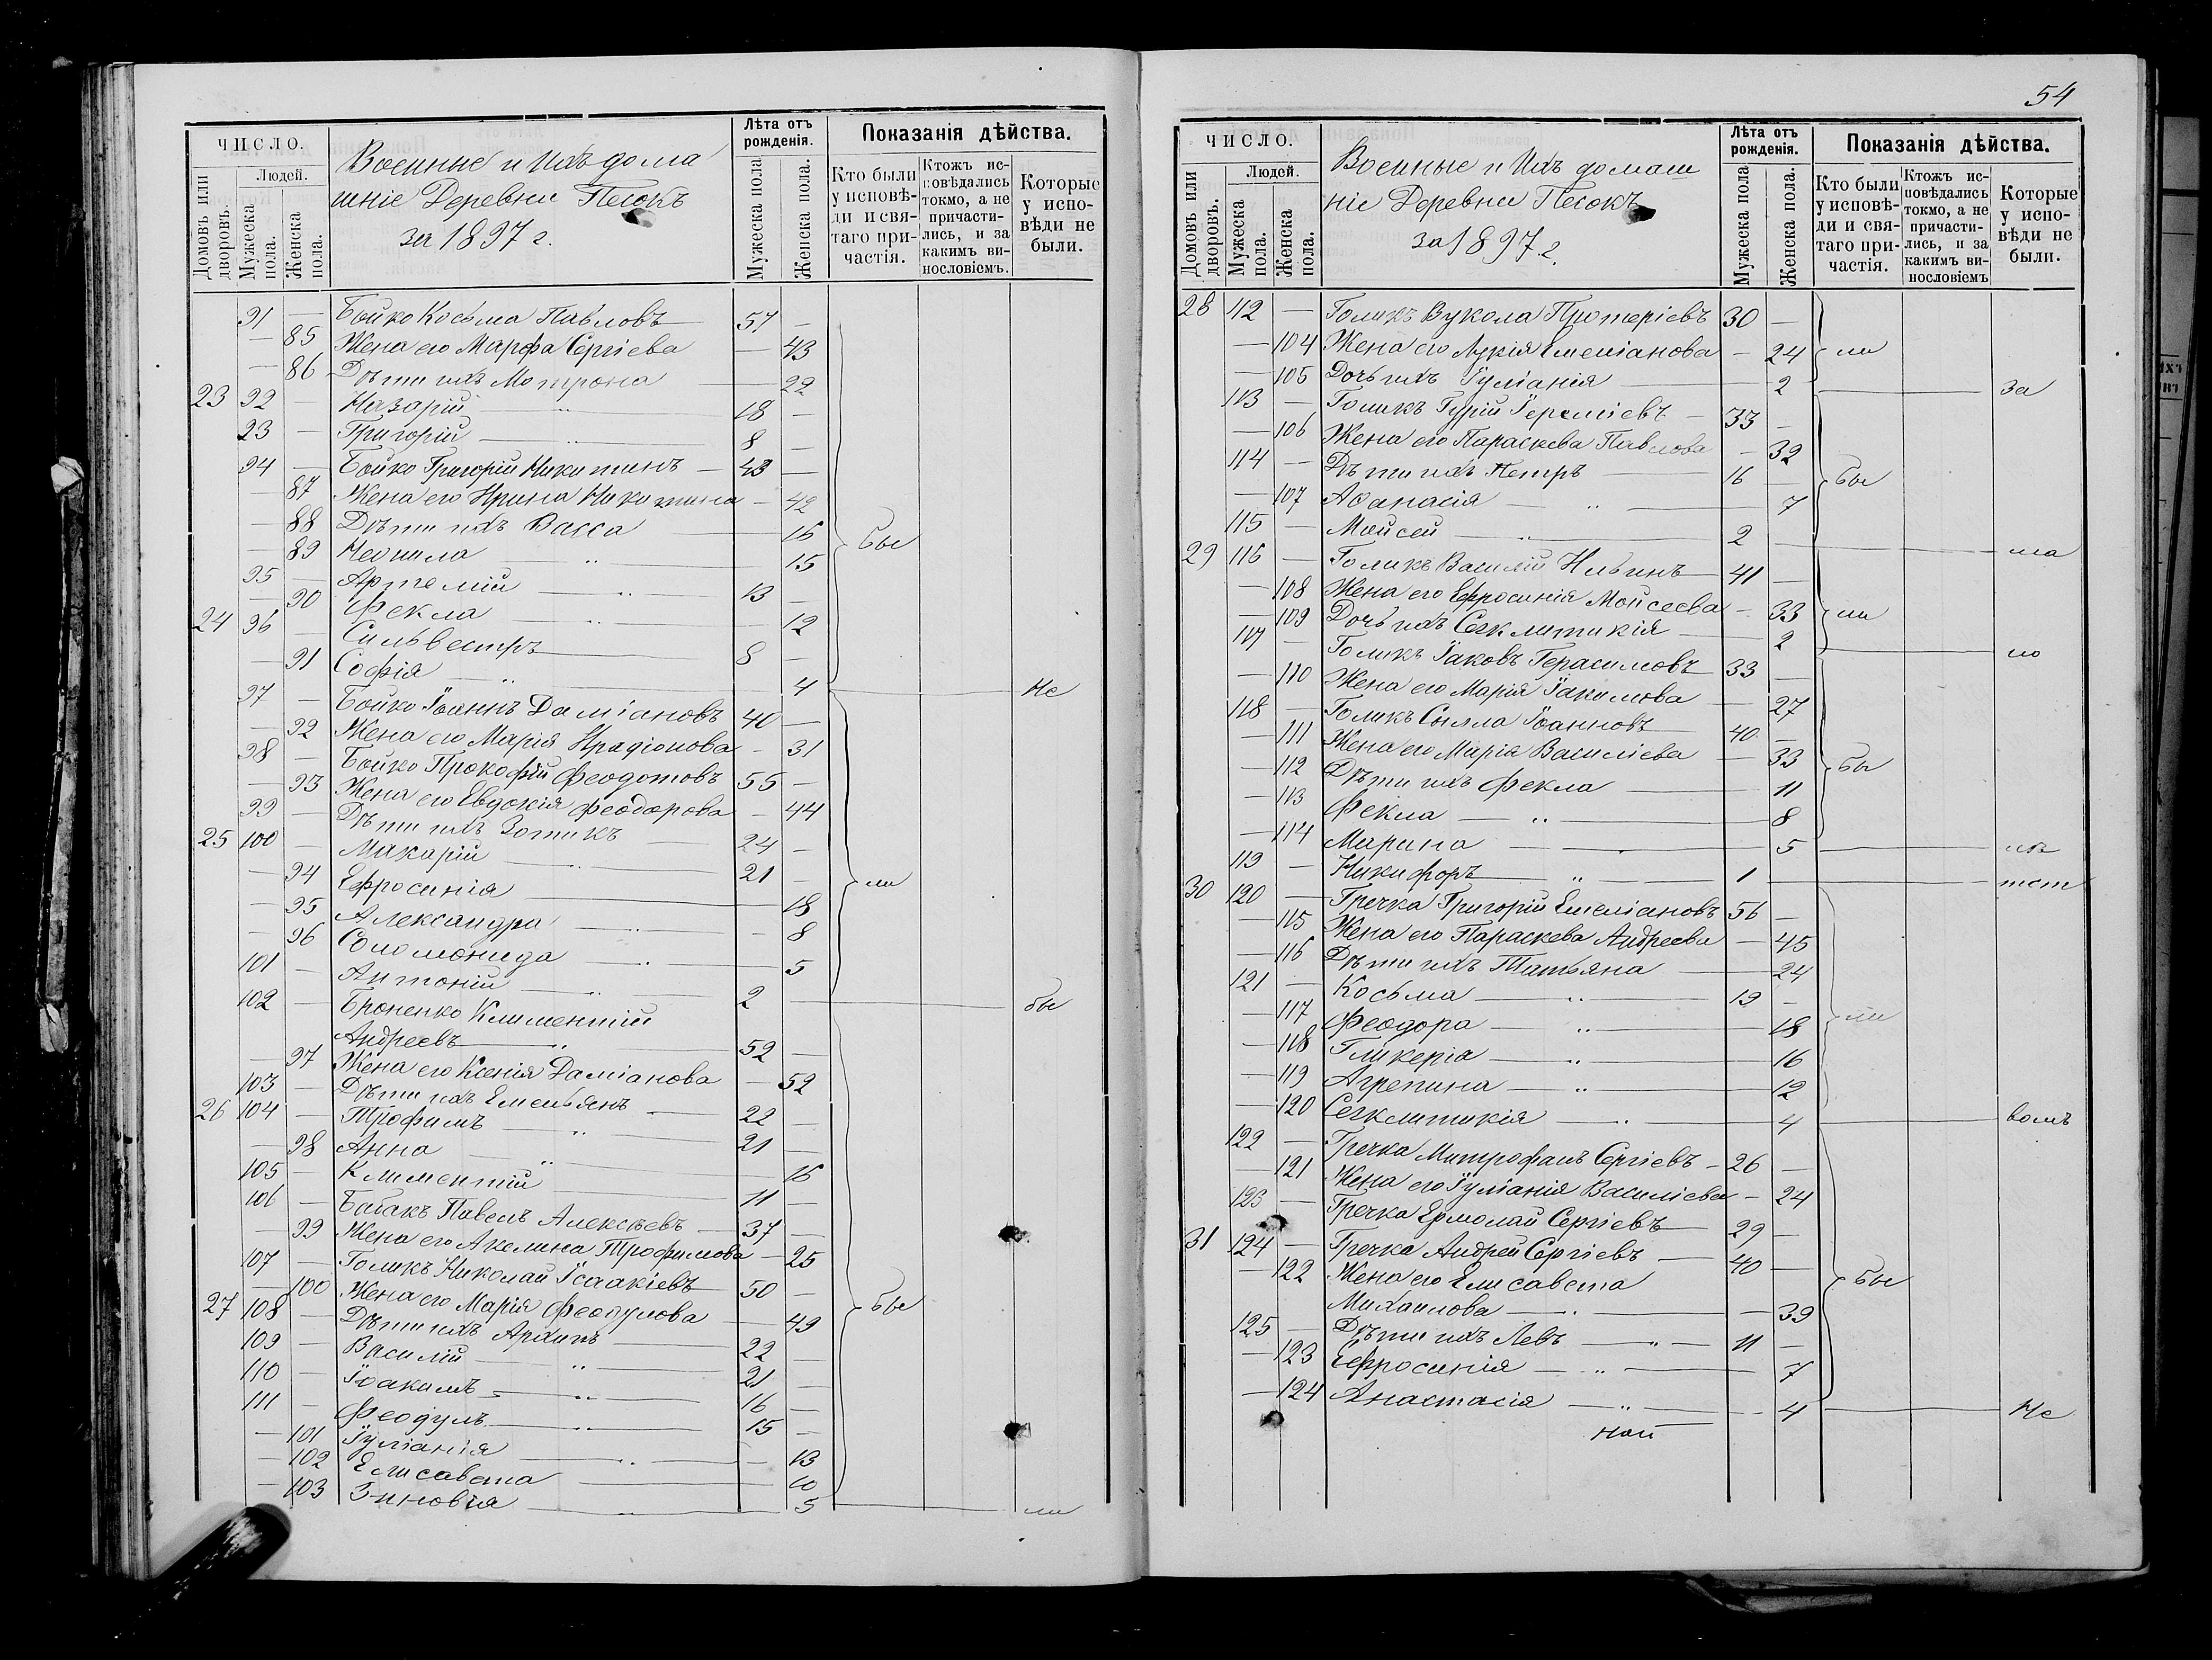 ЧИСЛО.
Людей.
Домовъ или дворовъ.
Мужеска пола.
Женска пола.
Военные и Ихъ дома
шніе Деревни Песокъ
за 1897 г.
Лѣта отъ рожденія.
Мужеска пола
Женска пола.
Показанія дѣйства.
Кто были у исповѣди и святаго причастія.
Ктожъ исповѣдались токмо, а не причастились, и за какимъ винословіемъ.
Которые у исповѣди не были.
91 — Бойко Косьма Павловъ 57 —
— 85 Жена его Марфа Сергіева — 43
— 86 Дѣти ихъ Мотрона — 22
23 92 — Назарій „ 18 —
93 — Григорій „ 8 —
94 — Бойко Григорій Никитинъ — 43 —
— 87 Жена его Ирина Никитина — 42
— 88 Дѣти ихъ Васса — 16
— 89 Неонила „ 15
Бы
95 — Артемій „ 13 —
— 90 Фекла „ 12
24 96 — Сильвестръ 8 —
— 91 Софія „ 4 Не
97 — Бойко Іоаннъ Даміановъ 40 —
— 92 Жена его Марія Иродіонова — 31
98 — Бойко Прокофій Феодотовъ 55 —
— 93 Жена его Евдокія Феодорова — 44
99 — Дѣти ихъ Зотикъ 24 —
25 100 — Макарій „ 21 —
— 94 Ефросинія 18
ли
— 95 Александра „ — 8
— 96 Соломонида „ 5
101 — Антоній „ 2 бы
102 — Броненко Климентій
Андреевъ „ 52 —
— 97 Жена его Ксенія Даміанова — 52
103 — Дѣти ихъ Емельянъ — 22 —
26 104 — Трофимъ „ 21 —
— 98 Анна „ — 16
105 — Климентій 11 —
106 — Бабакъ Павелъ Алексѣевъ — 37 —
— 99 Жена его Акелина Трофимова — 25
107 — Голикъ Николай Ісаакіевъ 50 —
— 100 Жена его Марія Феопулова — 49
27 108 — Дѣти ихъ Архипъ 22 —
Бы
109 — Василій „ 21 —
110 — Іоакимъ „ 16 —
111 — Феодулъ „ 15 —
— 101 Іуліанія „ — 13
— 102 Елисавета 10
— 103 Зиновія „ 5 ли
54
ЧИСЛО.
Людей.
Домовъ или дворовъ.
Мужеска пола.
Женска пола.
Военные и Ихъ домаш
ніе Деревни Песокъ
за 1897 г.
Лѣта отъ рожденія.
Мужеска пола
Женска пола.
Показанія дѣйства.
Кто были у исповѣди и святаго причастія.
Ктожъ исповѣдались токмо, а не причастились, и за какимъ винословіемъ
Которые у исповѣди не были.
28 112 — Голикъ Вукола Протеріевъ 30 —
— 104 Жена его Лукія Емеліанова — 24 ли
— 105 Дочь ихъ Іуліанія 2 За
113 — Голикъ Гурій Іереміевъ — 33 —
— 106 Жена его Параскева Павлова — 32
114 — Дѣти ихъ Петръ 16 — Бы
— 107 Аѳанасія — „ 7
115 — Мойсей „ 2 — ма
29 116 — Голикъ Василій Ильинъ 41 —
— 108 Жена его Ефросинія Мойсеева — 33 ли
— 109 Дочь ихъ Сѵклитикія — 2 ло
117 — Голикъ Іаковъ Герасимовъ 33 —
— 110 Жена его Марія Іакимова — 27
118 — Голикъ Сылла Іоанновъ 40 —
— 111 Жена его Марія Василіева — 33 Бы
— 112 Дѣти ихъ Фекла 11
— 113 Фекла — „ 8
— 114 Марина — „ 5
119 — Никифоръ „ 1 тст
30 120 — Гречка Григорій Емеліановъ 56 —
— 115 Жена его Параскева Андреева — 45
— 116 Дѣти ихъ Татьяна 24
121 — Косьма „ 19 —
— 117 Феодора — „ 18
ли
— 118 Гликерія „ 16
— 119 Агрепина — „ 12
— 120 Сѵклитикія „ 4 вомъ
122 — Гречка Митрофанъ Сергіевъ — 26 —
— 121 Жена его Іуліанія Василіева — 24
123 — Гречка Ермолай Сергіевъ 29 —
31 124 — Гречка Андрей Сергіевъ — 40 —
— 122 Жена его Елисавета
Бы
Михаилова — „ — 39
125 — Дѣти ихъ Левъ — „ — 11 —
— 123 Ефросинія — „ 7
— 124 Анастасія — „ 4 Не